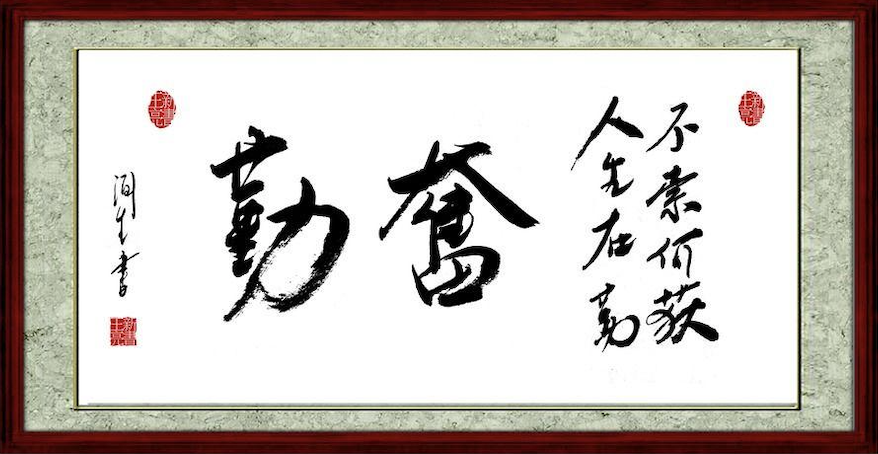 勤奮
人生在勤
不索何获
润生书